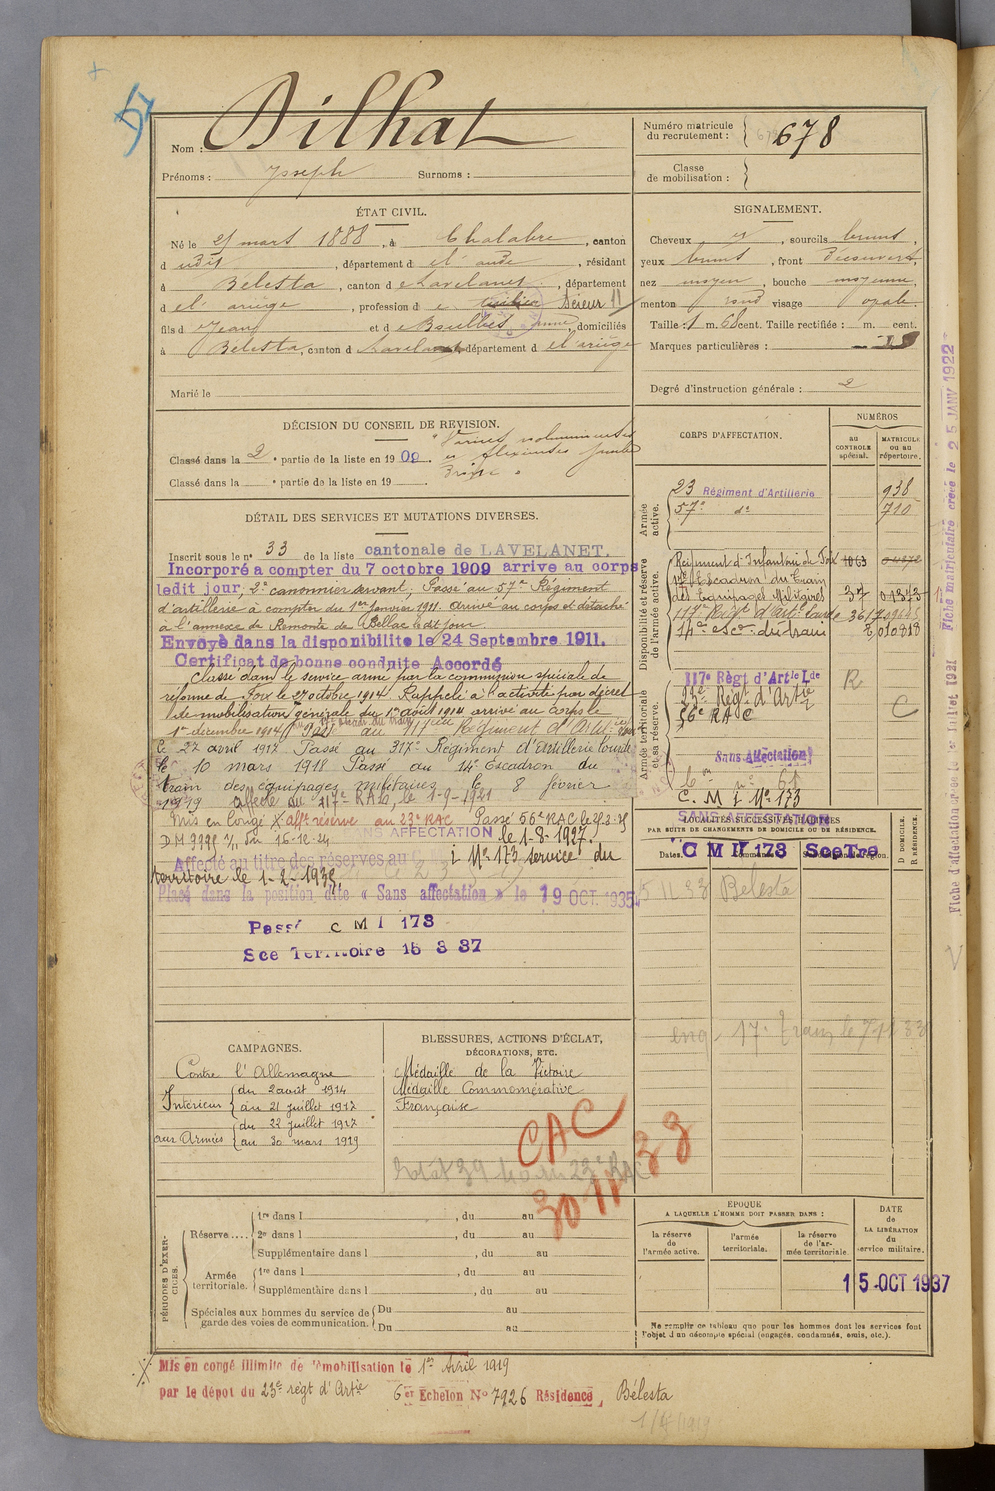 57
Nom : Dilhat
Prénoms : Joseph Surnoms :
Numéro matricule
du recrutement : 678
Classe
de mobilisation :
ÉTAT CIVIL.
Né le 21 mars 1888, à Chalabre, canton
d udit, département d el'aude, résidant
à Bélesta, canton d e Lavelanet, département
d el'ariège, profession d e Scieur
fils d Jean et d e Boulbès anne, domiciliés
à Bélesta, canton d Lavelanet, département d el'ariège
Marié le
SIGNALEMENT.
Cheveux et, sourcils bruns,
yeux bruns, front découvert,
nez moyen, bouche moyenne,
menton rond visage ovale.
Taille : 1 m. 68 cent. Taille rectifiée : m. cent.
Marques particulières :
Degré d'instruction générale : 2
DÉCISION DU CONSEIL DE REVISION.
Classé dans la 2e partie de la liste en 1909. "Varices volumineuses
et flexueuses jambe
Classé dans la e partie de la liste en 19 . droite"
CORPS D'AFFECTATION.
NUMÉROS
au
CONTROLE
spécial.
MATRICULE
OU AU
répertoire.
Armée
active.
23 Régiment d'Artillerie 938
57e do 710
Disponibilité et réserve
de l'armée active.
Régiment d'Infanterie de Foix 1063
17e Escadron du Train
des Equipages Militaires 37 01343
117e Régt d'Artie lourde 36/17
14e Esc. du train 010818
Armée territoriale
et sa réserve.
117e Régt d'Artie Lde R
23e Régt d'Artie
56e RAC C
Sans Affectation
C. M I No 173
DÉTAIL DES SERVICES ET MUTATIONS DIVERSES.
Inscrit sous le no 33 de la liste cantonale de LAVELANET.
Incorporé a compter du 7 octobre 1909 arrive au corps
ledit jour, 2e canonnier servant, Passé au 57e Régiment
d'artillerie à compter du 1er Janvier 1911. arrivé au corps et détaché
à l'annexe de Remonte de Bellac le dit jour.
Envoyé dans la disponibilite le 24 Septembre 1911.
Certificat de bonne conduite Accordé
Classé dans le service armé par la commission spéciale de
réforme de Foix le 27 octobre 1914. Rappelé à l'activité par décret
de mobilisation générale du 1er août 1914 arrivé au corps le
1er décembre 1914 Passé au 117e Régiment d'Artie lourde
le 27 avril 1917 Passé au 317e Régiment d'Artillerie lourde
le 10 mars 1918 Passé au 14e Escadron du
train des équipages militaires le 8 février
1919 affecté au 117e RALd, le 1-9-1921
Mis en congé X Aff. réserve au 23e RAC Passé 56e RAC le 25.3.25
DM 9995 1/1 du 15-12-24 SANS AFFECTATION le 1-8-1927.
Affecté au titre des réserves au C M I No 173 service du
territoire le 1-2-1935.
Placé dans la position dite « Sans affectation » le 19 OCT. 1935
Passé C M I 173
Sce Territoire 15 3 37
SANS AFFECTATION
LOCALITÉS SUCCESSIVES HABITÉES
PAR SUITE DE CHANGEMENTS DE DOMICILE OU DE RÉSIDENCE.
Dates. Communes. Subdivision de région.
D DOMICILE.
R RÉSIDENCE.
C M II 173 Sce Tre
5 11 23 Belesta
eng. 17e train le
CAMPAGNES.
Contre l'Allemagne
Intérieur du 2 août 1914
au 21 juillet 1917
aux Armées du 22 juillet 1917
au 30 mars 1919
BLESSURES, ACTIONS D'ÉCLAT,
DÉCORATIONS, ETC.
Médaille de la Victoire
Médaille Commémorative
Française
CAC
30 11 33
PÉRIODES D'EXERCICES.
Réserve....
1re dans l , du au
2e dans l , du au
Supplémentaire dans l , du au
Armée
territoriale.
1re dans l , du au
Supplémentaire dans l , du au
Spéciales aux hommes du service de
garde des voies de communication.
Du au
Du au
ÉPOQUE
A LAQUELLE L'HOMME DOIT PASSER DANS :
la réserve
de
l'armée active.
l'armée
territoriale.
la réserve
de l'ar-
mée territoriale
DATE
de
LA LIBÉRATION
du
service militaire.
15 OCT 1937
Ne remplir ce tableau que pour les hommes dont les services font
l'objet d'un décompte spécial (engagés, condamnés, omis, etc.).
X Mis en congé illimité de démobilisation le 1er Avril 1919
par le dépôt du 23e régt d'Artie 6e Echelon No 7926 Résidence, Bélesta
1/4/1919
Fiche matriculaire créée le 25 JANV 1922